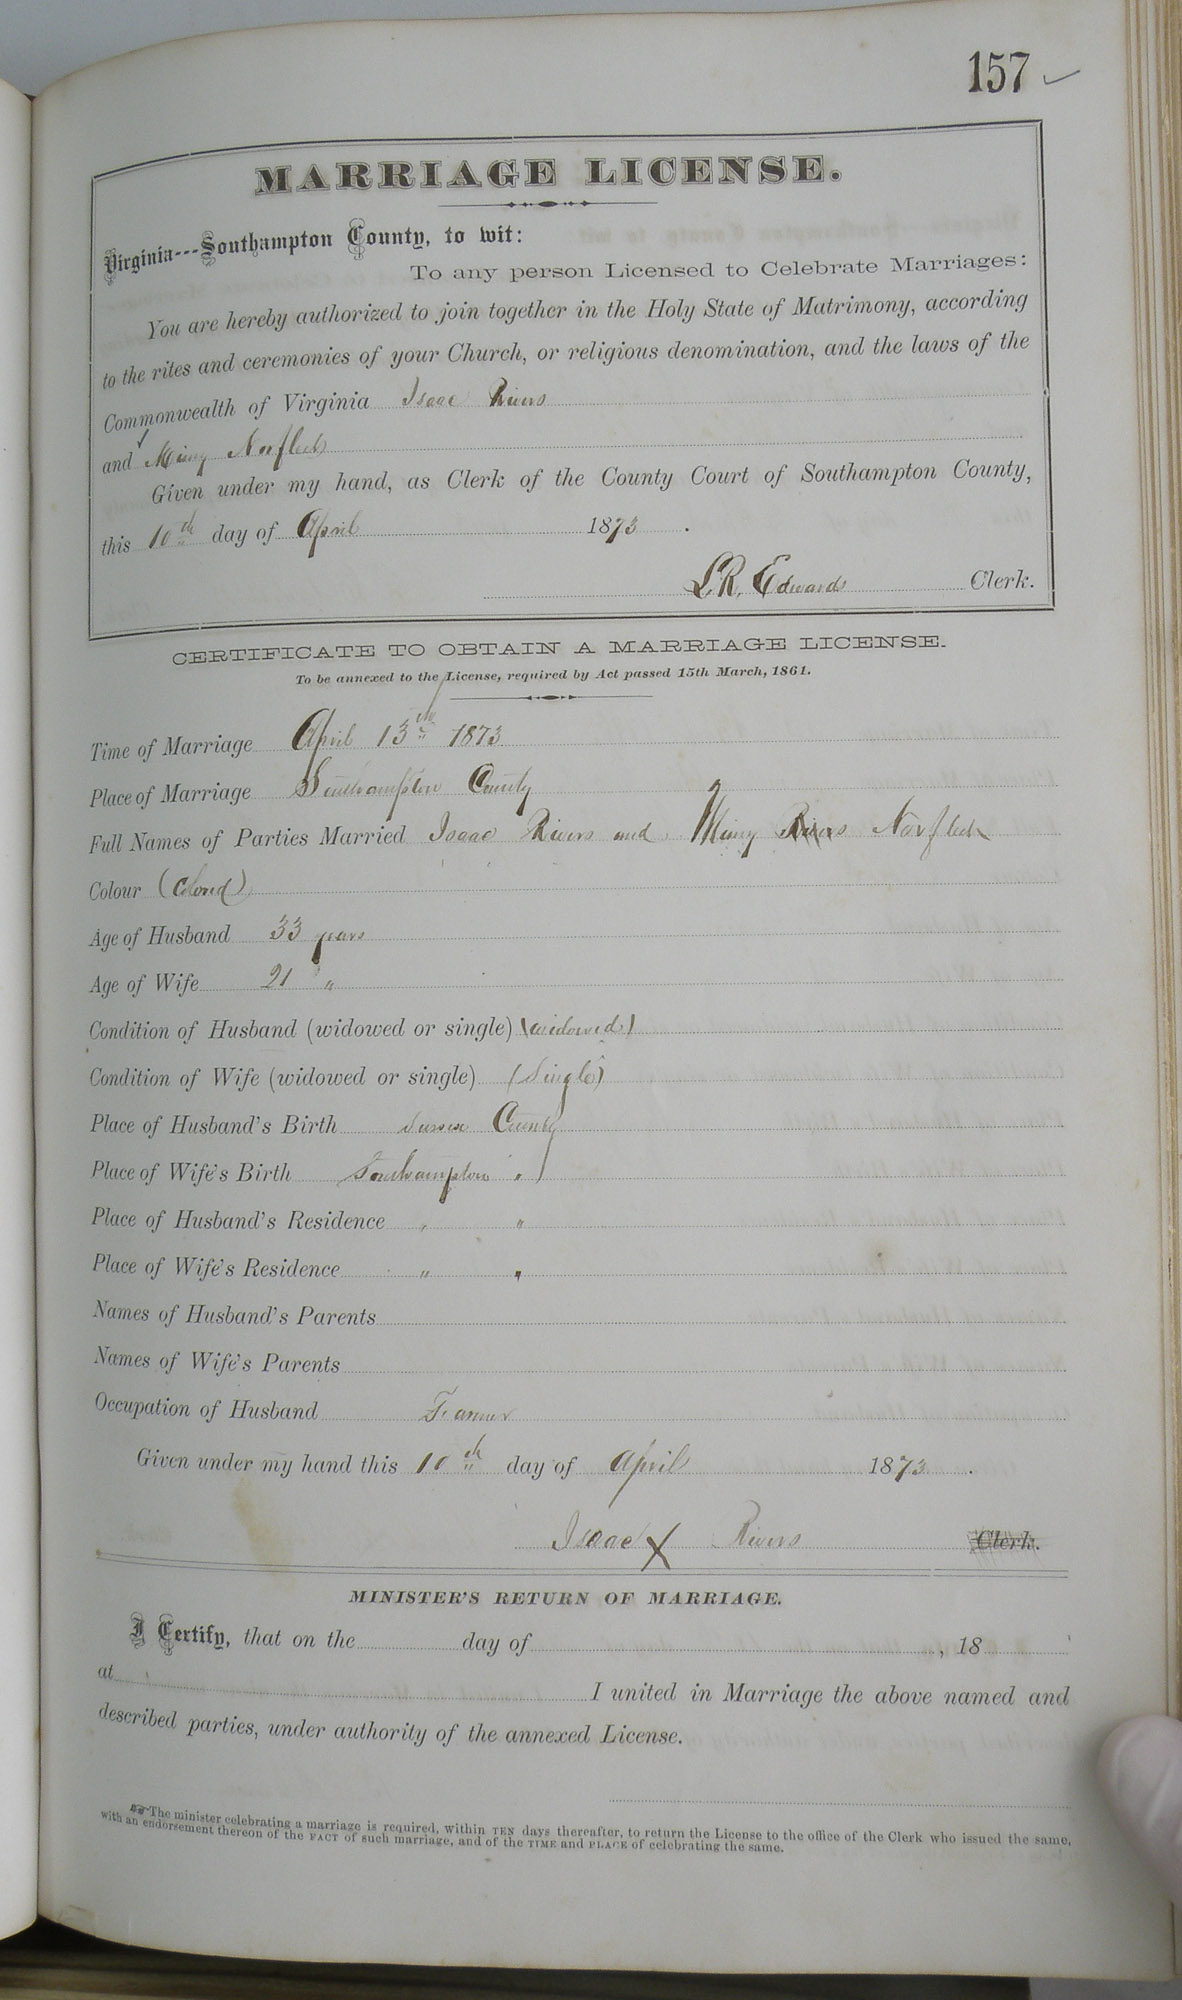 157 ✓
MARRIAGE LICENSE.
Virginia---Southampton County, to wit:
To any person Licensed to Celebrate Marriages:
You are hereby authorized to join together in the Holy State of Matrimony, according
to the rites and ceremonies of your Church, or religious denomination, and the laws of the
Commonwealth of Virginia Isaac Rivers
and Mimy Norfleet
Given under my hand, as Clerk of the County Court of Southampton County,
this 10th day of April 1873.
L.R. Edwards Clerk.
CERTIFICATE TO OBTAIN A MARRIAGE LICENSE.
To be annexed to the License, required by Act passed 15th March, 1861.
Time of Marriage April 13th 1873
Place of Marriage Southampton County
Full Names of Parties Married Isaac Rivers and Mimy Rivers Norfleet
Colour (Colored)
Age of Husband 33 years
Age of Wife 21 "
Condition of Husband (widowed or single) (widowed)
Condition of Wife (widowed or single) (Single)
Place of Husband's Birth Sussex County
Place of Wife's Birth Southampton "
Place of Husband's Residence " "
Place of Wife's Residence " "
Names of Husband's Parents
Names of Wife's Parents
Occupation of Husband Farmer
Given under my hand this 10th day of April 1873.
Isaac X Rivers Clerk.
MINISTER'S RETURN OF MARRIAGE.
I Certify, that on the day of , 18
at I united in Marriage the above named and
described parties, under authority of the annexed License.
☞ The minister celebrating a marriage is required, within TEN days thereafter, to return the License to the office of the Clerk who issued the same,
with an endorsement thereon of the FACT of such marriage, and of the TIME and PLACE of celebrating the same.